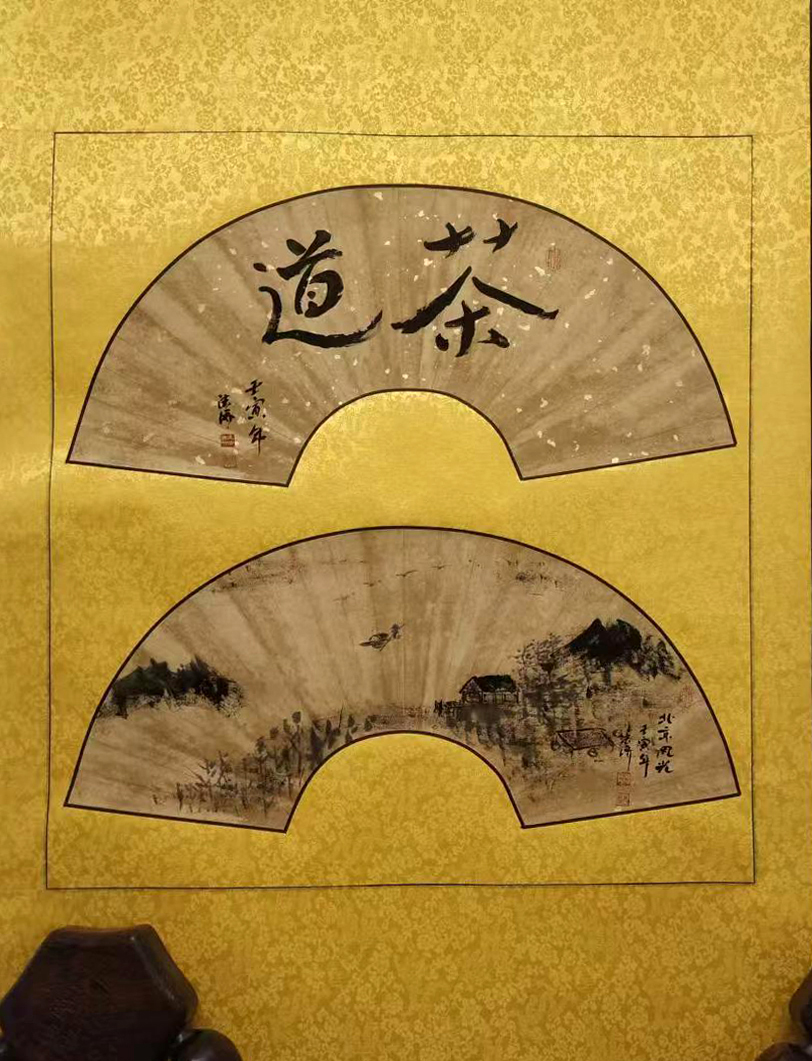 茶道
壬寅年
北京風光
壬寅年